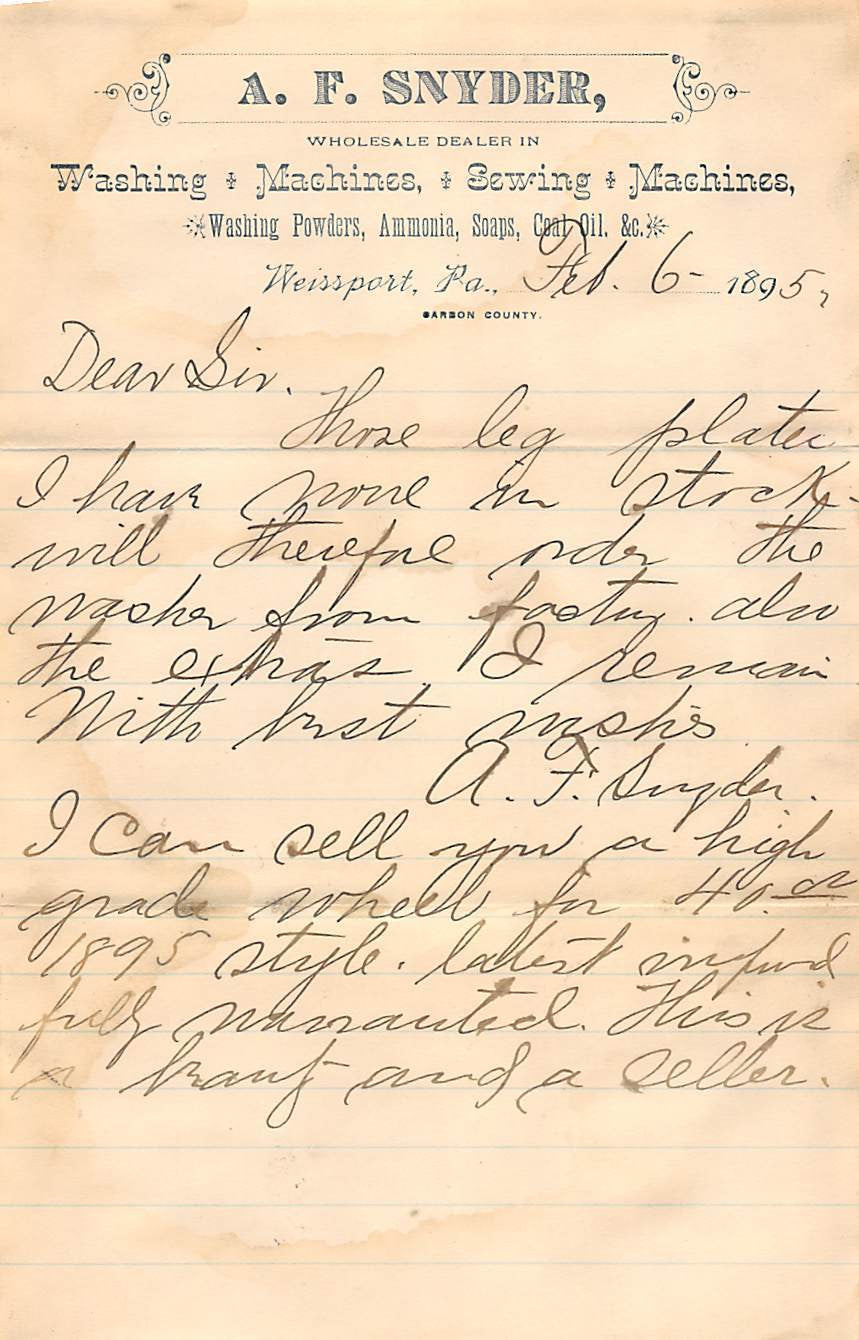 A. F. SNYDER,
WHOLESALE DEALER IN
Washing Machines, Sewing Machines,
Washing Powders, Ammonia, Soaps, Coal Oil, &c.
Weissport, Pa., Feb. 6- 1895,
CARBON COUNTY.
Dear Sir.
Those leg plates
I have none in stock-
will therefore order the
washer from factory. also
the extras. I remain
With best wishes
A. F. Snyder.
I can sell you a high
grade wheel for 40.
1895 style. latest improved
fully warranted. This is
a beauty and a seller.